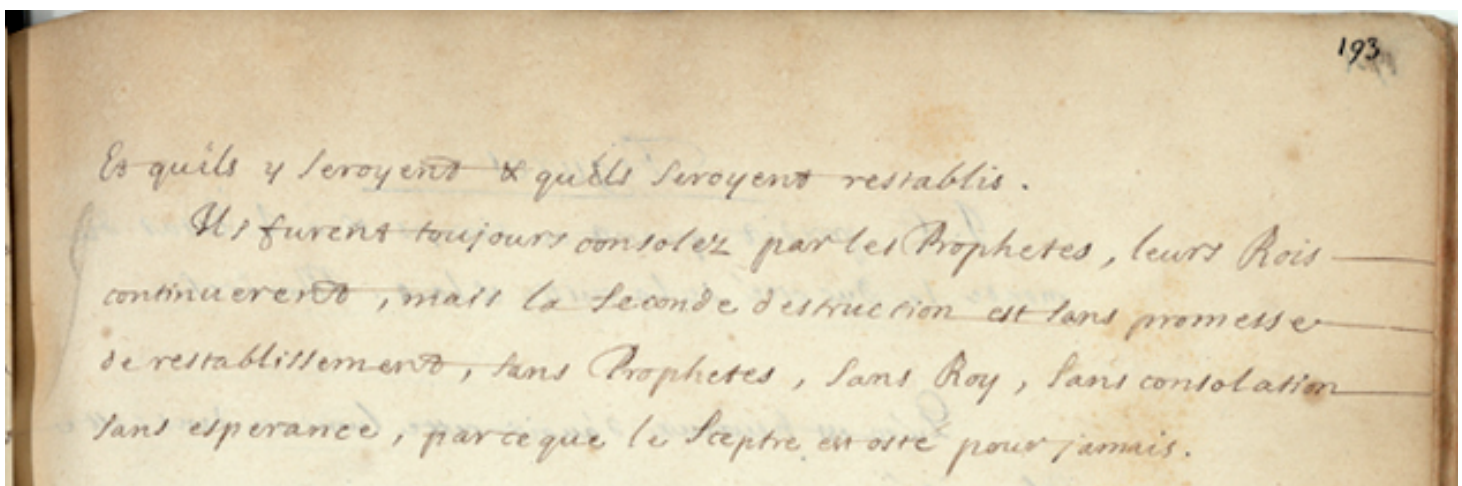 193
Et quils y seroyent & quils seroyent restablis.
Ils furent toujours consolez par les Prophetes, leurs Rois
continuerent, mais la seconde destruction est sans promesse
de restablissement, sans Prophetes, sans Roy, sans consolation
sans esperance, parceque le Sceptre est osté pour jamais.